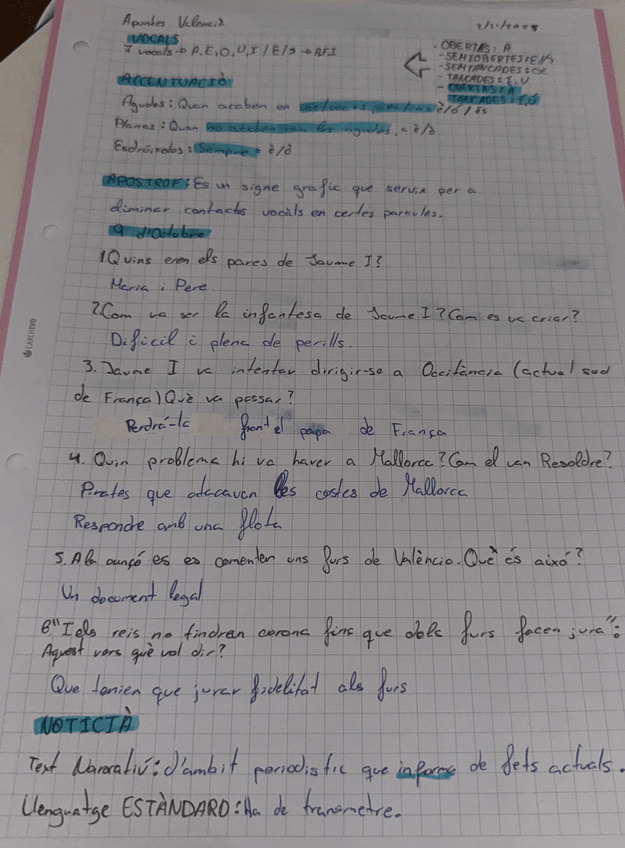 Apuntes Valencià
VOCALS
7 vocals → A, E, O, U, I / ɛ / ɔ → AFI
- OBERTAS: A
- SEMIOBERTES: ɛ/ɔ
- SEMITANCADES: OE
- TANCADES: I, U
- OBERTAS: A
TANCADES: I, U
ACCENTUACIÓ
Agudes: Quan acaben en è/ò / és
Planes: Quan no acaben com les agudes, = è/ò
Esdrúixoles: Sempre = è/ò
APOSTROF: Es un signe grafic que servix per a
eliminar contactes vocàls en certes paraules.
9 d'Octubre
1 Quins eren els pares de Jaume I?
Maria i Pere
2 Com va ser la infantesa de Jaume I? Com es va criar?
Dificil i plena de perills.
3. Jaume I va intentar dirigir-se a Occitància (actual sud
de França) Què va passar?
Perdrá-la front el papa de França
4. Quin problema hi va haver a Mallorca? Com el van Resoldre?
Pirates que atacaven les costes de Mallorca
Respondre amb una flota
5. A la cançó es comenten uns furs de València. Què és aixó?
Un document legal
6 "I els reis no tindran corona fins que dels furs facen jura":
Aquest vers què vol dir?
Que tenien que jurar fidelitat als furs
NOTICIÀ
Text Narratiu: d'ambit periodistic que informa de fets actuals.
Llenguatge ESTÀNDARD: Ha de transmetre.
CARCHIVO